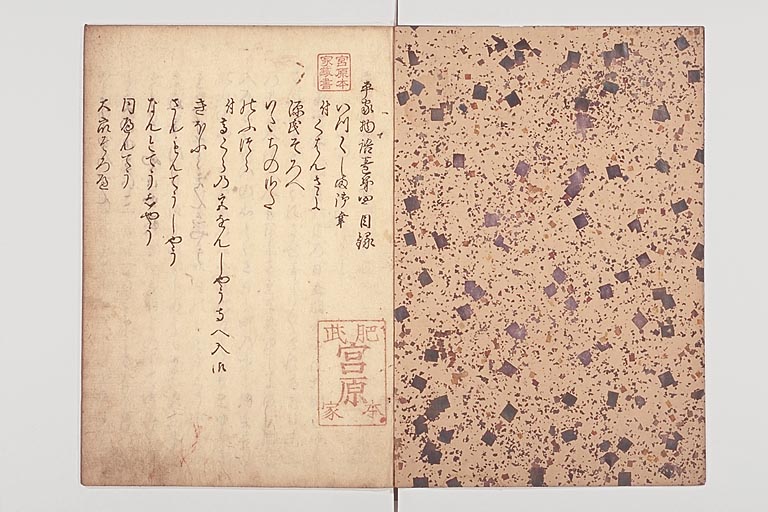 宮原本
家蔵書
平家物語巻第四目録
いつくしま御幸
付くはんきよ
源氏そろへ
いたちのさた
のふつら
付高くらの宮をんしやう寺へ入御
きほふ
さんもんてうしやう
なんとてうしやう
同へんてう
大衆そろへ
肥 武
宮原
本 家